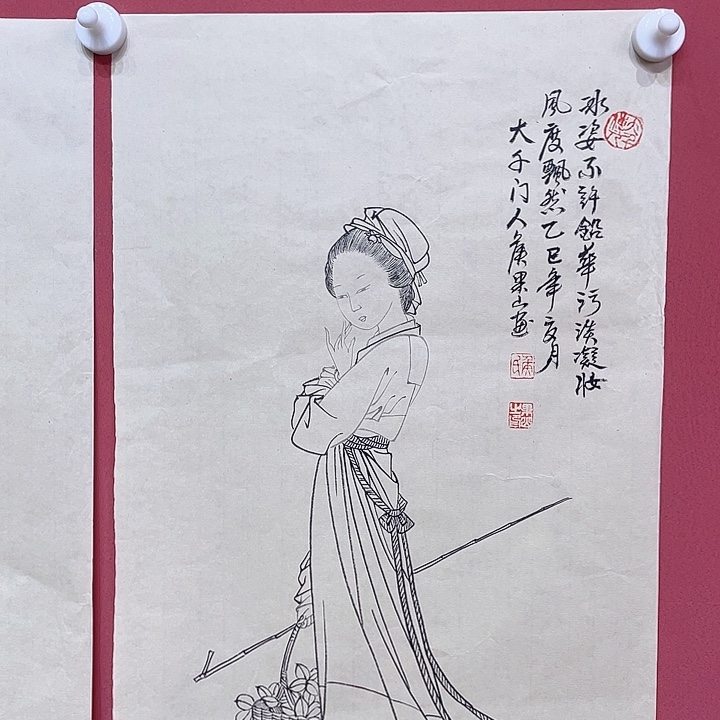 冰姿不許鉛華污淡凝妝
風度飄然乙巳年夏月
大千门人果山画